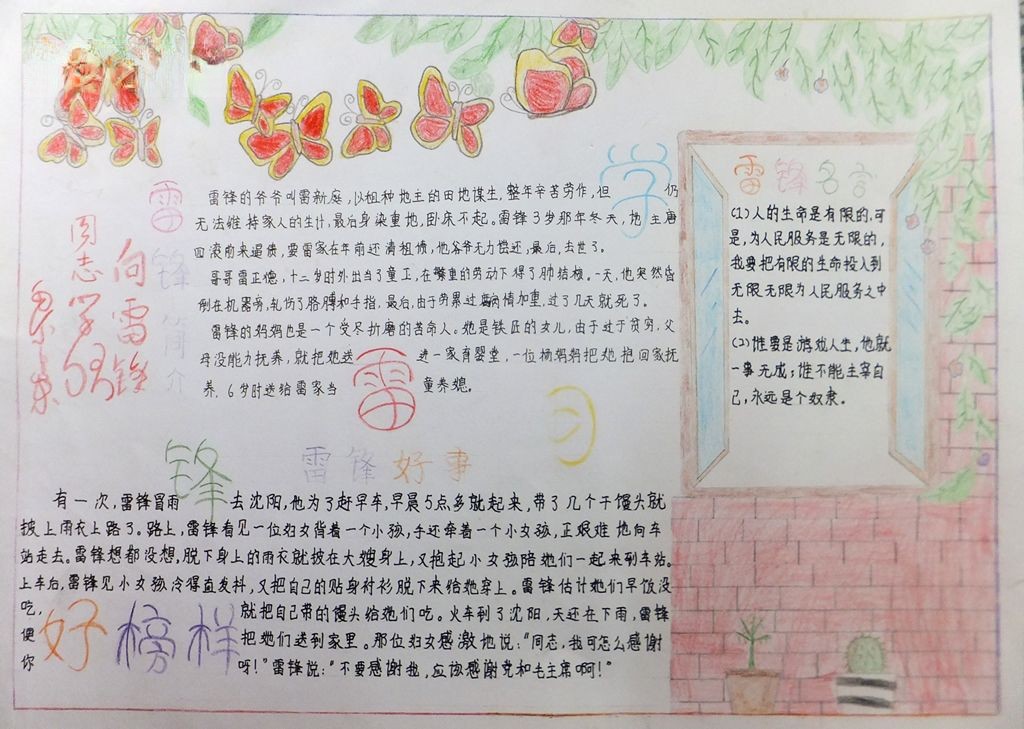 向雷锋
同志学习
雷锋简介
雷锋的爷爷叫雷新庭,以租种地主的田地谋生,整年辛苦劳作,但仍
无法维持家人的生计,最后身染重地,卧床不起。雷锋3岁那年冬天,地主唐
四滚前来逼债,要雷家在年前还清租债,他爷爷无力偿还,最后,去世了。
哥哥雷正德,十二岁时外出当了童工,在繁重的劳动下得了肺结核。一天,他突然昏
倒在机器旁,轧伤了胳膊和手指。最后,由于劳累过度病情加重,过了几天就死了。
雷锋的妈妈也是一个受尽折磨的苦命人。她是铁匠的女儿,由于过于贫穷,父
母没能力抚养,就把她送进一家育婴堂,一位杨妈妈把她抱回家抚
养.6岁时送给雷家当童养媳。
学
习
雷
锋
好榜样
雷锋好事
有一次,雷锋冒雨去沈阳,他为了赶早车,早晨5点多就起来,带了几个干馒头就
披上雨衣上路了。路上,雷锋看见一位妇女背着一个小孩,手还牵着一个小女孩,正艰难地向车
站走去。雷锋想都没想,脱下身上的雨衣就披在大嫂身上,又抱起小女孩陪她们一起来到车站。
上车后,雷锋见小女孩冷得直发抖,又把自己的贴身衬衫脱下来给她穿上。雷锋估计她们早饭没
吃,便就把自己带的馒头给她们吃。火车到了沈阳,天还在下雨,雷锋
你把她们送到家里。那位妇女感激地说:“同志,我可怎么感谢
呀!”雷锋说:“不要感谢我,应该感谢党和毛主席啊!”
雷锋名言
(1)人的生命是有限的,可
是,为人民服务是无限的,
我要把有限的生命投入到
无限无限为人民服务之中
去。
(2)谁要是游戏人生,他就
一事无成;谁不能主宰自
己,永远是个奴隶。